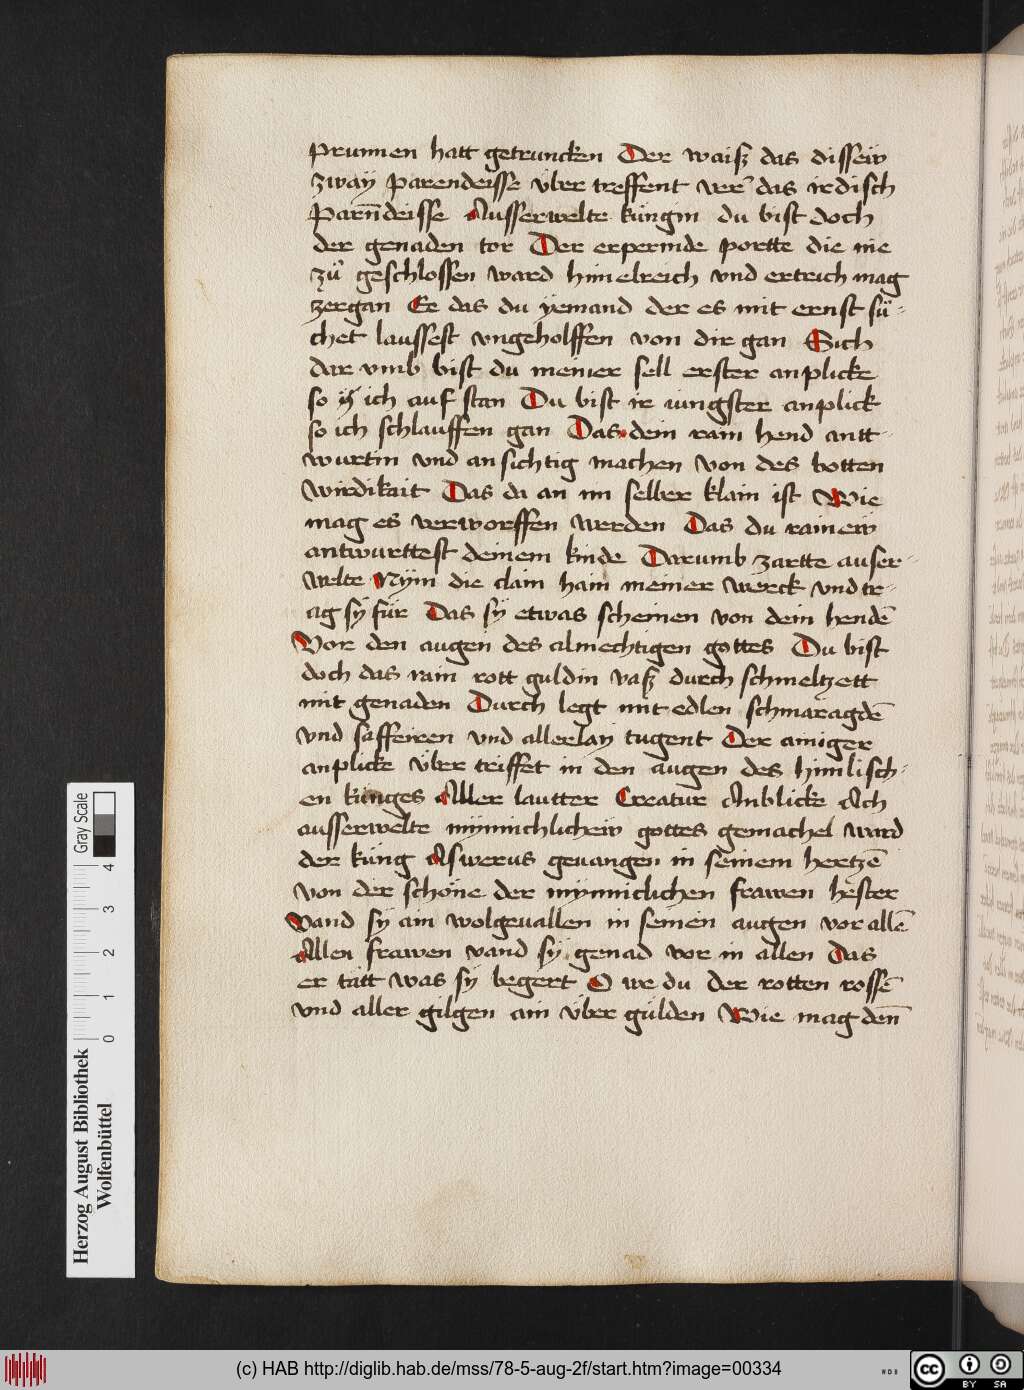 prunnen hatt getruncken Der waisz das dissew
zway parendeisse über treffent verr das irdisch
Parn̄deisse Ausserwelte küngin du bist doch
der genaden tor Der erpermde portte die nie
zů geschlossen ward himelreich vnd ertrich mag
zergan Ee das du yemand der es mit ernst sů-
chet laussest vngeholffen von dir gan Sich
dar vmb bist du meiner sell erster anplicke
so ich auf stan Du bist ir iungster anplick
so ich schlauffen gan Das dein rain hend antt-
wurtin vnd ansichtig machen von des botten
wirdikait Das da an im selber klain ist Wie
mag es verworffen werden Das du rainew
antwurttest deinem kinde Darumb zartte auser-
welte Nym die clain hain meiner werck vnd tr-
ag sy für Das sy etwas scheinen von dein hendē
Vor den augen des almechtigen gottes Du bist
doch das rain rott guldin vasz durch schmeltzett
mit genaden Durch legt mit edlen schmaragdē
vnd saffeiren vnd allerlay tugent Der ainiger
anplicke über triffet in den augen des himlisch-
en künges Aller lautter Creatur Anblicke Ach
ausserwelte mynnichlichew gottes gemachel ward
der küng Aswerus geuangen in seinem hertzē
von der schöne der mynniclichen frawen hester
Vand sy ain wolgeuallen in seinen augen vor allē
Allen frawen vand sy genad vor in allen Das
er tätt was sy begert O we du der rotten rossē
vnd aller gilgen ain über gülden Wie mag den̄
Herzog August Bibliothek
Wolfenbüttel
0 1 2 3 4
Gray Scale
(c) HAB http://diglib.hab.de/mss/78-5-aug-2f/start.htm?image=00334
WDB
cc BY SA